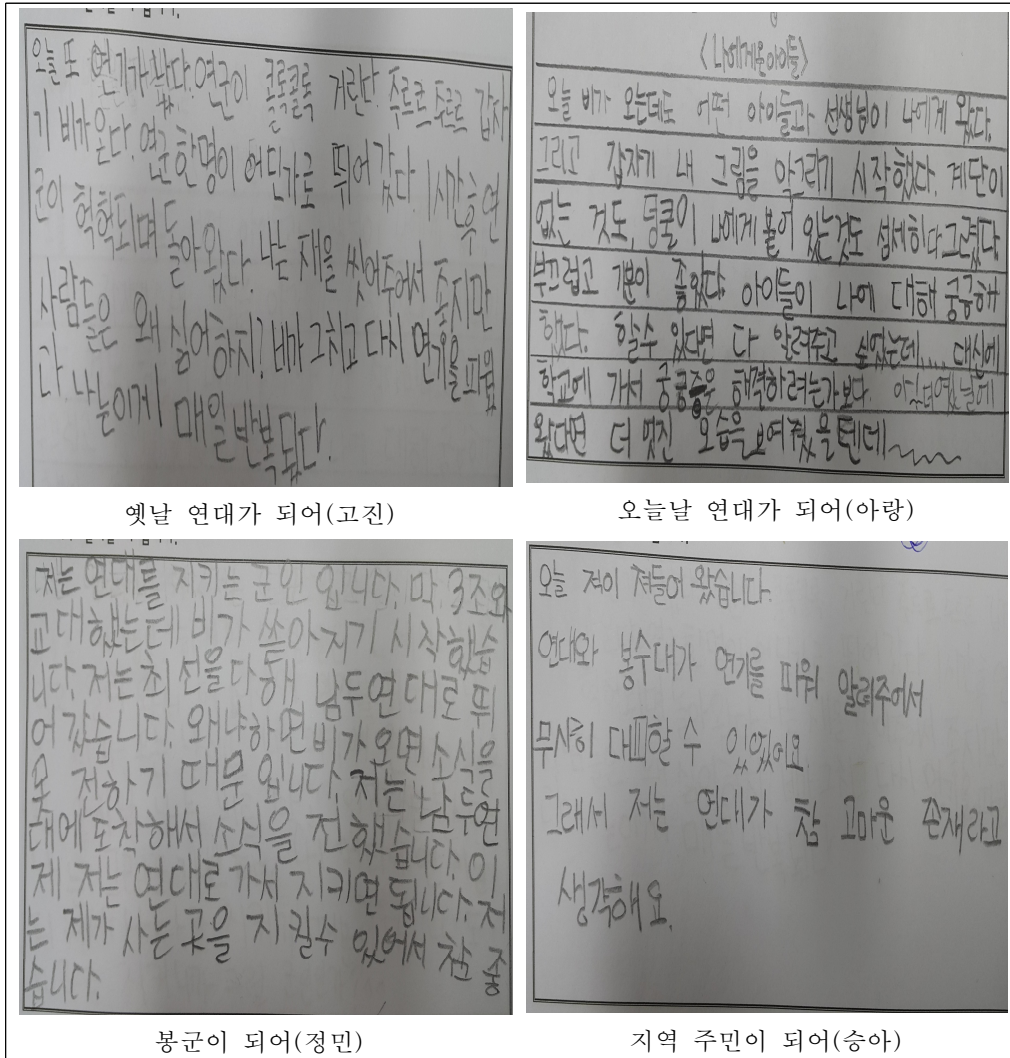 오늘 또 연기가 났다. 연군이 콜록콜록 거린다. 주르르 투르르 갑자
기 비가 온다. 연군 한명이 어딘가로 뛰어 갔다. 1시간후 연
군이 헉헉되며 돌아왔다. 나는 재를 씻어주어서 좋지만
사람들은 왜 싫어 하지? 비가 그치고 다시 연기을 피웠
다. 나는 이게 매일 반복됬다.
옛날 연대가 되어(고진)
<나에게 온 아이들>
오늘 비가 오는데도 어떤 아이들과 선생님이 나에게 왔다.
그리고 갑자기 내 그림을 막 그리기 시작했다. 계단이
없는 것도, 덩쿨이 나에게 붙어 있는것도 섬세하다 그렸다.
부끄럽고 기분이 좋았다. 아이들이 나에 대해 궁금해
했다. 할수 있다면 다 알려주고 싶었는데.... 대신에
학교에 가서 궁금증은 해결하려는가보다. 옛날에
왔다면 더 멋진 모습을 보여줬을텐데~~~
오늘날 연대가 되어(아랑)
저는 연대를 지키는 군인 입니다. 막 3조와
교대 했는데 비가 쏟아지기 시작했습
니다. 저는 최선을 다해 남두연대로 뛰
어 갔습니다. 왜냐하면 비가 오면 소식을
못 전하기 때문 입니다. 저는 남두연
대에 도착해서 소식을 전했습니다. 이
제 저는 연대로 가서 지키면 됩니다. 저
는 제가 사는 곳을 지킬수 있어서 참 좋
습니다.
봉군이 되어(정민)
오늘 적이 쳐들어 왔습니다.
연대와 봉수대가 연기를 피워 알려주어서
무사히 대피할 수 있었어요.
그래서 저는 연대가 참 고마운 존재라고
생각해요.
지역 주민이 되어(승아)